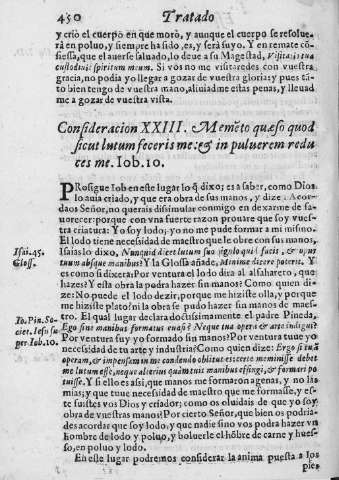 450 Tratado
y criò el cuerpo en que morò, y aunque el cuerpo se resolue-
rà en poluo, y siempre ha sido, es, y serà suyo. Y en remate cõ-
fiessa, que el auerse saluado, lo deue a su Magestad, Visitatio tua
custodiuit spiritum meum. Si vos no me visitaredes con vuestra
gracia, no podia yo llegar a gozar de vuestra gloria: y pues tã-
to bien tengo de vuestra mano, aliuiadme estas penas, y lleuad
me a gozar de vuestra vista.
Consideracion XXIII. Memẽto quæso quod
sicut lutum feceris me: & in puluerem redu
ces me. Iob. 10.
PRosigue Iob en este lugar lo q̃ dixo; es a saber, como Dios
lo auia criado, y que era obra de sus manos, y dize: Acor-
daos Señor, no querais disimular conmigo en dexarme de fa-
uorecer: porque con vna fuerte razon prouare que soy vues-
tra criatura: Yo soy lodo; yo no me pude formar a mi mismo.
El lodo tiene necesidad de maestro que le obre con sus manos,
Isai. 45.
Isaias lo dixo, Nunquid dicet lutum suo figulo quid facis, & opus
Gloss.
tuum absque manibus? Y la Glossa añade, Minimè dicere poterit. Y
es como si dixera: Por ventura el lodo dira al alfaharero, que
hazes? Y esta obra la podra hazer sin manos? Como quien di-
ze: No puede el lodo dezir, porque me hiziste olla, y porque
me hiziste plato? ni la obra se pudo hazer sin manos de maes-
Io. Pin. So-
tro. El qual lugar declara doctissimamente el padre Pineda,
ciet. Iesu su-
Ego sine manibus formatus euasi? Neque tua opera & arte indigui?
per Iob. 10.
Por ventura fuy yo formado sin manos? Por ventura tuue yo
necessidad de tu arte y industria? Como quien dize: Ergo si tuã
operam, & impensam in me condendo obliuisceris meminisse debet
me lutum esse, neque alterius quàm tuis manibus effingi, & formari po
tuisse. Y si ello es assi, que manos me formaron agenas, y no las
mias; y que tuue necessidad de maestro que me formasse, y es-
te fuistes vos Dios y criador; como os oluidais de que yo soy
obra de vuestras manos? Por cierto Señor, que bien os podria-
des acordar que soy lodo; y que nadie sino vos podra hazer vn
hombre de lodo y poluo, y boluerle el hõbre de carne y hues-
so, en poluo y lodo.
En este lugar podremos considerar la anima puesta a los
pies